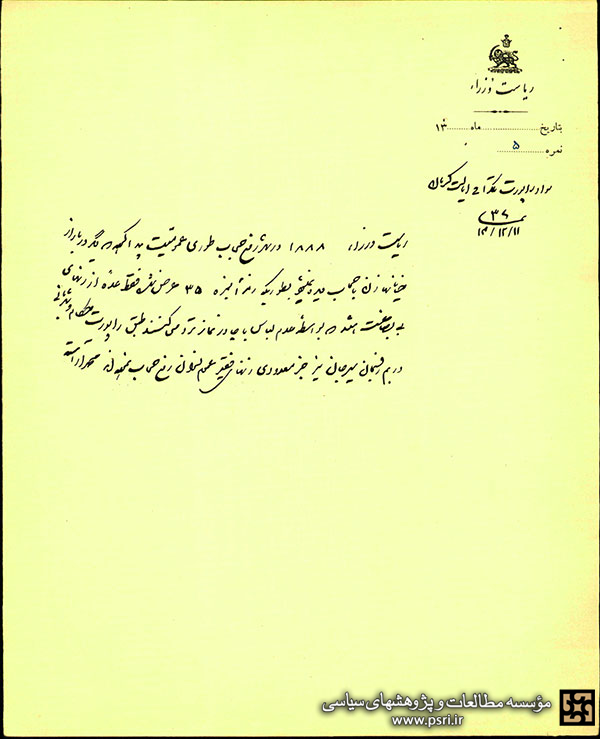 ریاست وزراء
بتاریخ ماه ۱۳
نمره ۵
سواد راپورت تلگرافی ایالت کرمان
نمره ۳۷
۱۴/۱۲/۱۱
ریاست وزراء ۱۸۸۸ در شهر رفع حجاب طوری عمومیت پیدا کرده که دیگر در بازار
خیابانها زن با حجاب دیده نمیشود بطوریکه ۳۵ عرض شد فقط عده از زنهای
بی بضاعت هستند که بواسطه عدم لباس با چادر نماز تردد میکنند طبق راپورت حکام
در بم رفسنجان سیرجان نیز جز معدودی زنهای فقیر عموم نسوان رفع حجاب نموده اند
مؤسسه مطالعات و پژوهشهای سیاسی
www.psri.ir